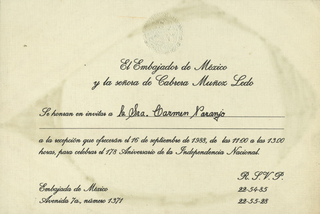 El Embajador de México
y la señora de Cabrera Muñoz Ledo
Se honran en invitar a la Sra. Carmen Naranjo
a la recepción que ofrecerán el 16 de septiembre de 1988, de las 11:00 a las 13:00
horas, para celebrar el 178 Aniversario de la Independencia Nacional.
R. S. V. P.
Embajada de México
22-54-85
Avenida 7a., número 1371
22-55-28